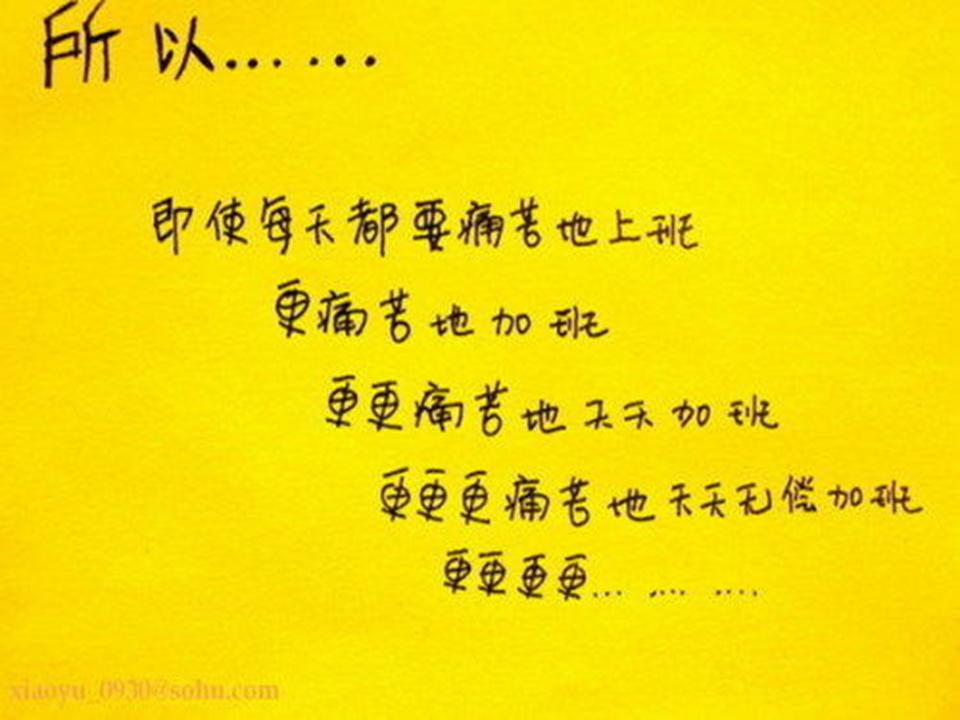 所以……
即使每天都要痛苦地上班
更痛苦地加班
更更痛苦地天天加班
更更更痛苦地天天无偿加班
更更更更... .... ....
xiaoyu_0930@sohu.com